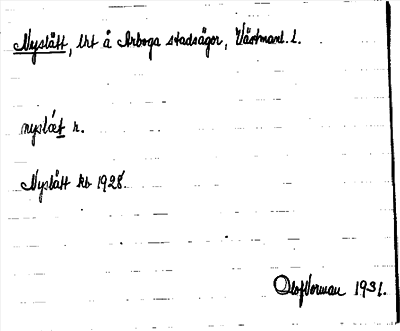 Nyslått, trt å Arboga stadsägor, Västmanl. l.
nyslǽt r.
Nyslått kb 1928.
Olof Vorman 1931.